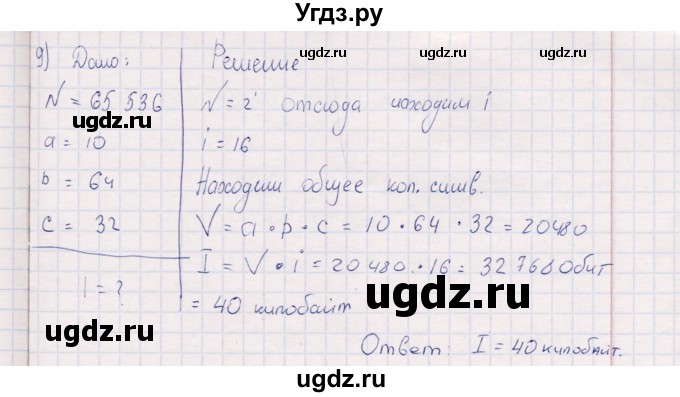 Угдз.ру
ugdz.ru ugdz.ru
9) Дано: Решение
N = 65 536 N = 2ⁱ отсюда находим i
ugdz.ru ugdz.ru
a = 10 i = 16
b = 64 Находим общее кол. симв.
ugdz.ru ugdz.ru
c = 32 V = a · b · c = 10 · 64 · 32 = 20480
I = V · i = 20 480 · 16 = 32 7680 бит
I = ?
= 40 килобайт
ugdz.ru ugdz.ru
Ответ: I = 40 килобайт.
ugdz.ru